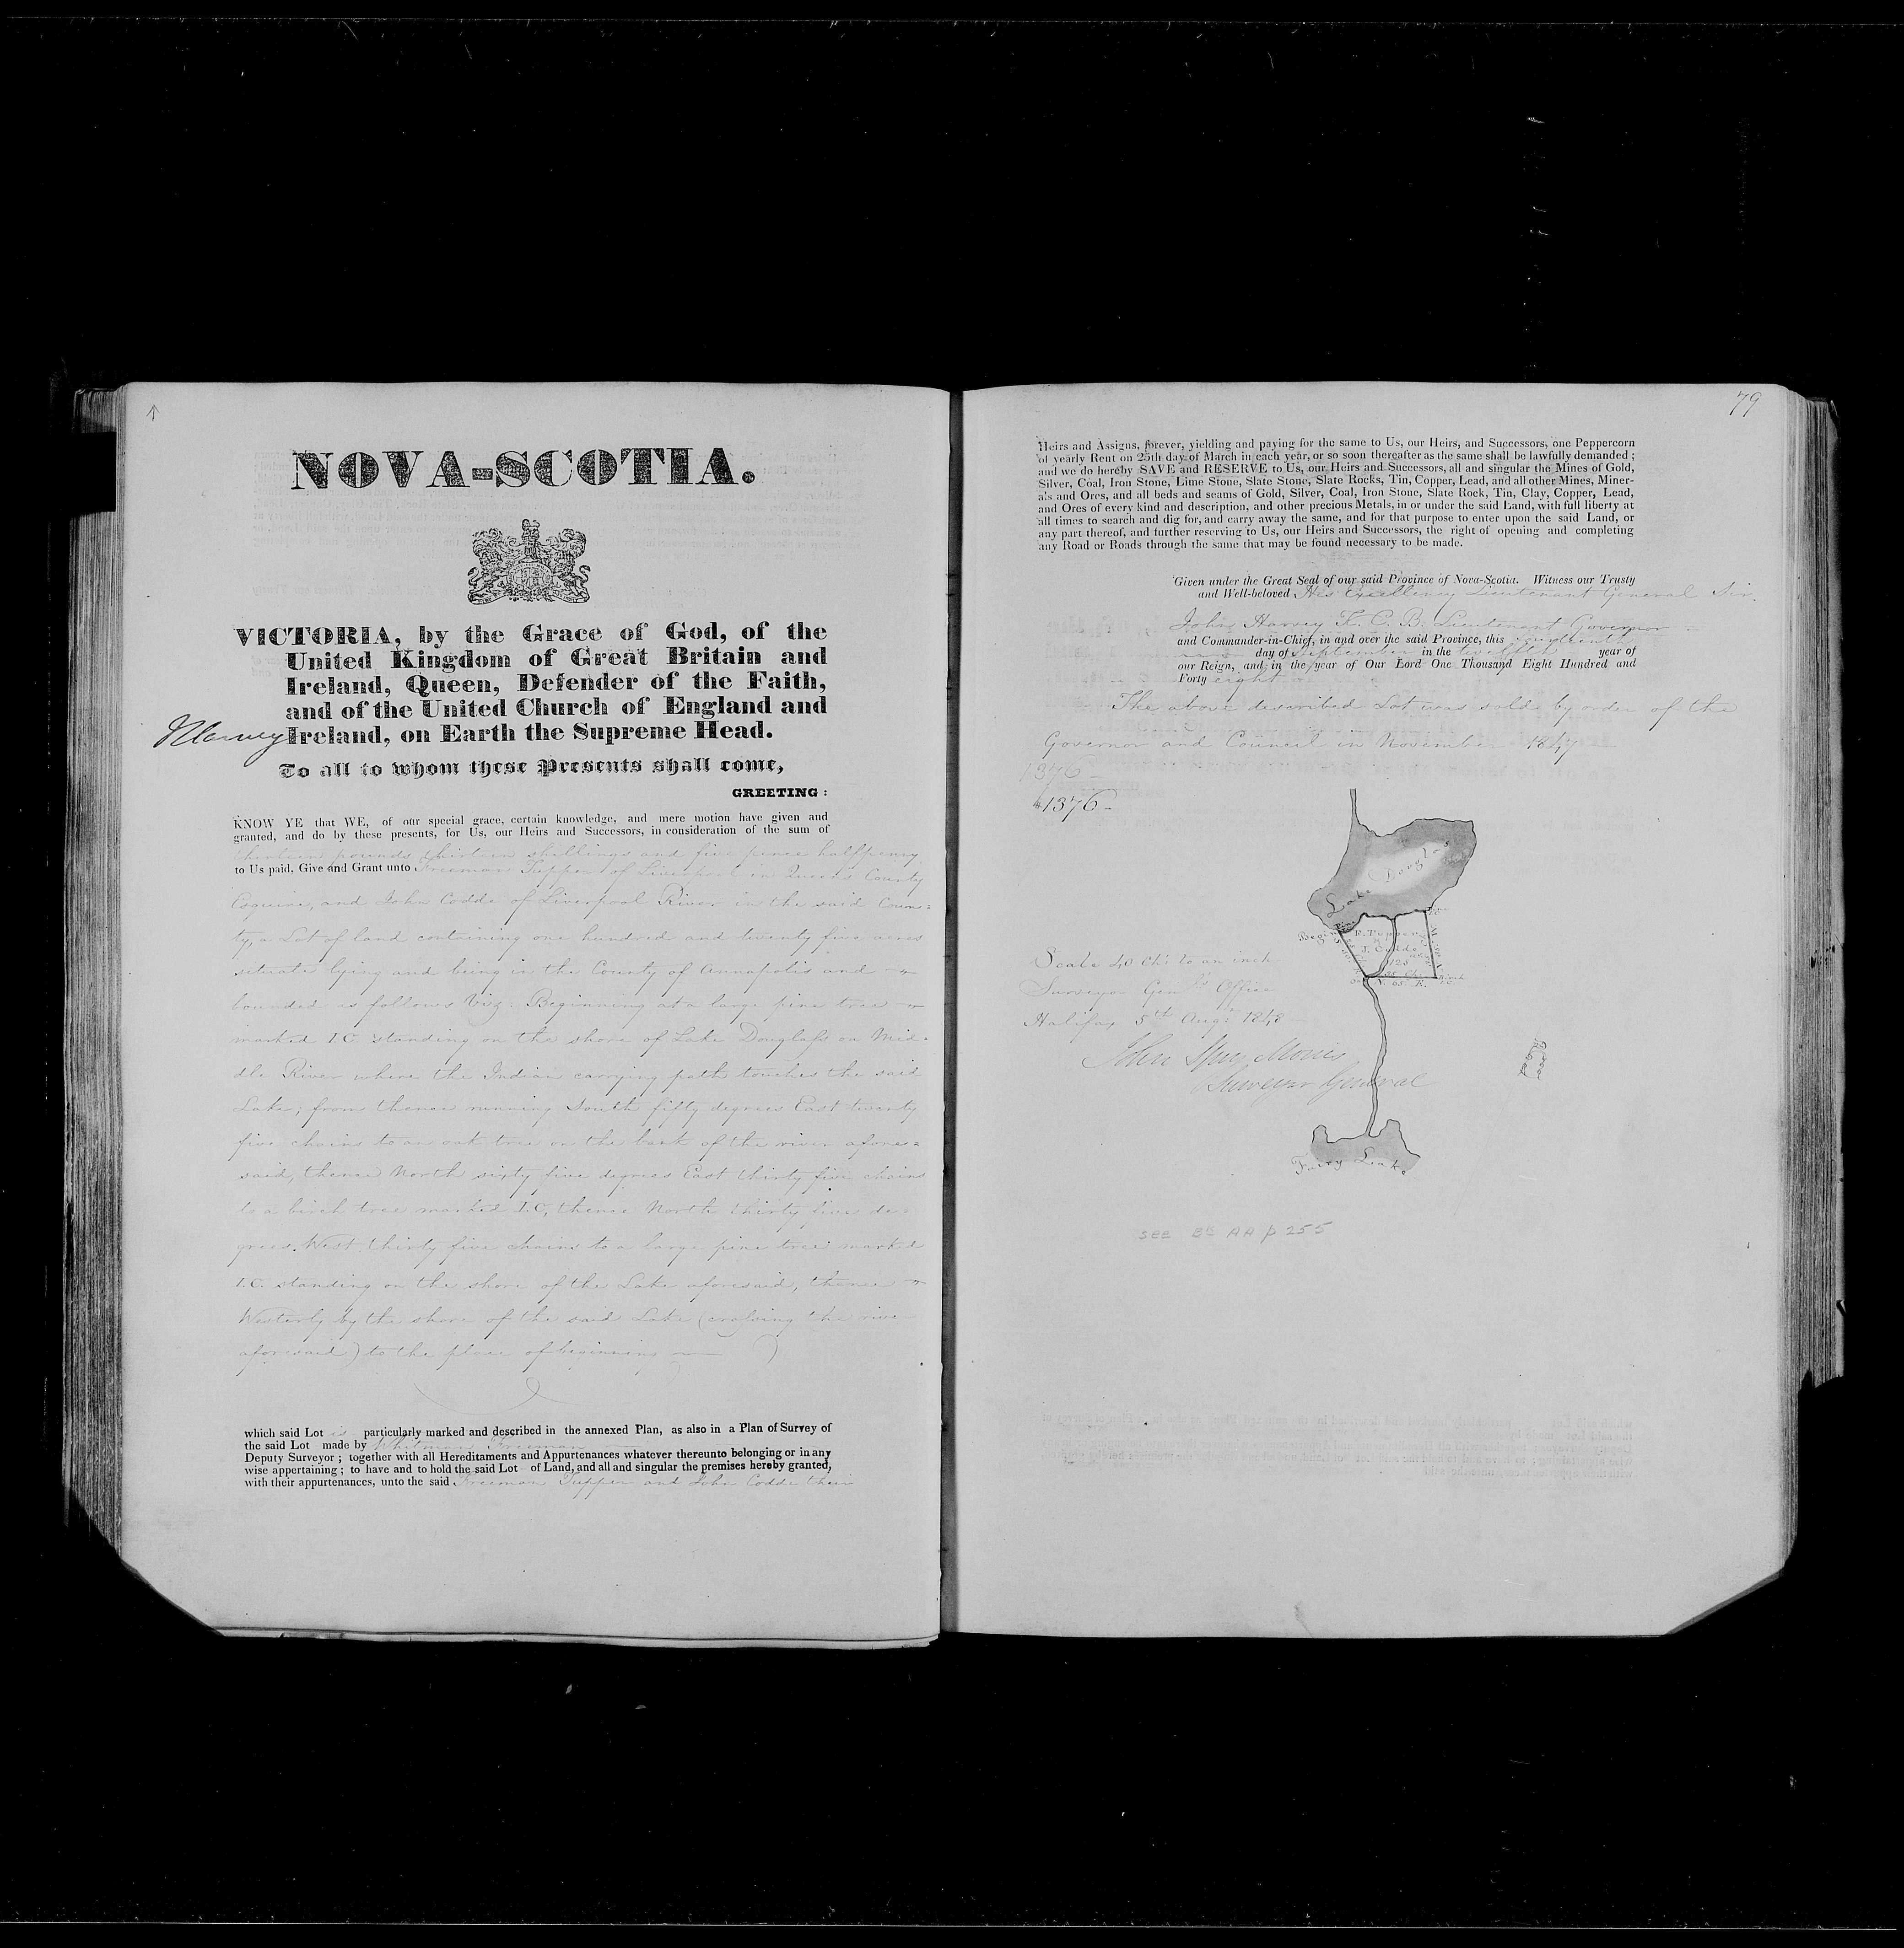 NOVA-SCOTIA.
VICTORIA, by the Grace of God, of the
United Kingdom of Great Britain and
Ireland, Queen, Defender of the Faith,
and of the United Church of England and
JHarvey Ireland, on Earth the Supreme Head.
To all to whom these Presents shall come,
GREETING :
KNOW YE that WE, of our special grace, certain knowledge, and mere motion have given and
granted, and do by these presents, for Us, our Heirs and Successors, in consideration of the sum of
pounds thirteen shillings and five pence halfpenny
to Us paid, Give and Grant unto Freeman Tupper of Liverpool in Queen's County
Esquire, and John Codde of Liverpool River in the said Coun=
ty, a Lot of land containing one hundred and twenty five acres
situate lying and being in the County of Annapolis and
bounded as follows Viz: Beginning at a large pine tree
marked I C standing on the shore of Lake Douglass on Mid=
dle River where the Indian carrying path touches the said
Lake; from thence running South fifty degrees East twenty
five chains to an oak tree on the bank of the river afores=
said, thence North sixty five degrees East thirty five chains
to a birch tree marked I.C, thence North thirty five de=
grees West thirty five chains to a large pine tree marked
I.C. standing on the shore of the Lake aforesaid, thence
Westerly by the shore of the said Lake (crossing the river
aforesaid) to the place of beginning
which said Lot is particularly marked and described in the annexed Plan, as also in a Plan of Survey of
the said Lot made by Whitman Freeman
Deputy Surveyor ; together with all Hereditaments and Appurtenances whatever thereunto belonging or in any
wise appertaining ; to have and to hold the said Lot of Land, and all and singular the premises hereby granted,
with their appurtenances, unto the said Freeman Tupper and John Codde their
79
Heirs and Assigns, forever, yielding and paying for the same to Us, our Heirs, and Successors, one Peppercorn
of yearly Rent on 25th day of March in each year, or so soon thereafter as the same shall be lawfully demanded ;
and we do hereby SAVE and RESERVE to Us, our Heirs and Successors, all and singular the Mines of Gold,
Silver, Coal, Iron Stone, Lime Stone, Slate Stone, Slate Rocks, Tin, Copper, Lead, and all other Mines, Miner-
als and Ores, and all beds and seams of Gold, Silver, Coal, Iron Stone, Slate Rock, Tin, Clay, Copper, Lead,
and Ores of every kind and description, and other precious Metals, in or under the said Land, with full liberty at
all times to search and dig for, and carry away the same, and for that purpose to enter upon the said Land, or
any part thereof, and further reserving to Us, our Heirs and Successors, the right of opening and completing
any Road or Roads through the same that may be found necessary to be made.
Given under the Great Seal of our said Province of Nova-Scotia. Witness our Trusty
and Well-beloved His Excellency Lieutenant General Sir
John Harvey K. C. B. Lieutenant Governor
and Commander-in-Chief, in and over the said Province, this
day of September in the twelfth year of
our Reign, and in the year of Our Lord One Thousand Eight Hundred and
Forty eight
The above described Lot was sold by order of the
Governor and Council in November 1847
1376
#1376
Lake Douglas
Begin
F. Tupper
&
J. Codde
125
35 Ch.
N. 65. E.
Scale 40 Chs to an inch
Surveyor Genls Office
Halifax 5th Augt 1848
John Spry Morris
Surveyor General
Fairy Lake
see BK AA p 255